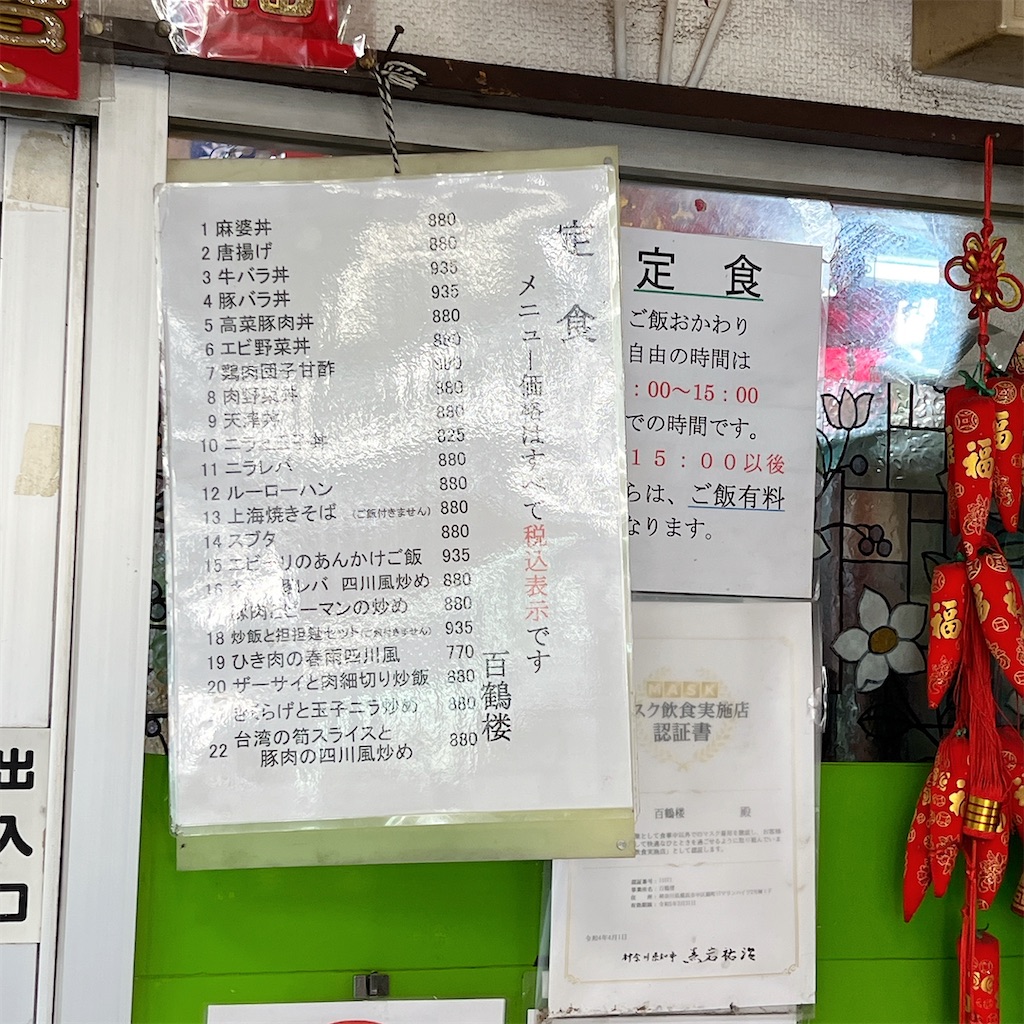 定食
メニュー価格はすべて税込表示です
百鶴楼
1 麻婆丼 880
2 唐揚げ 880
3 牛バラ丼 935
4 豚バラ丼 935
5 高菜豚肉丼 880
6 エビ野菜丼 880
7 鶏肉団子甘酢 880
8 肉野菜丼 880
9 天津丼 880
10 ニラ玉子丼 825
11 ニラレバ 880
12 ルーローハン 880
13 上海焼きそば (ご飯付きません) 880
14 スブタ 880
15 エビチリのあんかけご飯 935
16 豚レバ 四川風炒め 880
豚肉とピーマンの炒め 880
18 炒飯と担担麺セット(ご飯付きません) 935
19 ひき肉の春雨四川風 770
20 ザーサイと肉細切り炒飯 880
きくらげと玉子ニラ炒め 880
22 台湾の筍スライスと
豚肉の四川風炒め 880
定 食
ご飯おかわり
自由の時間は
:00〜15:00
での時間です。
15:00以後
らは、ご飯有料
なります。
MASK
スク飲食実施店
認証書
百鶴楼 殿
令和4年4月1日
神奈川県知事 黒岩祐治
出入口
福
福
福
福